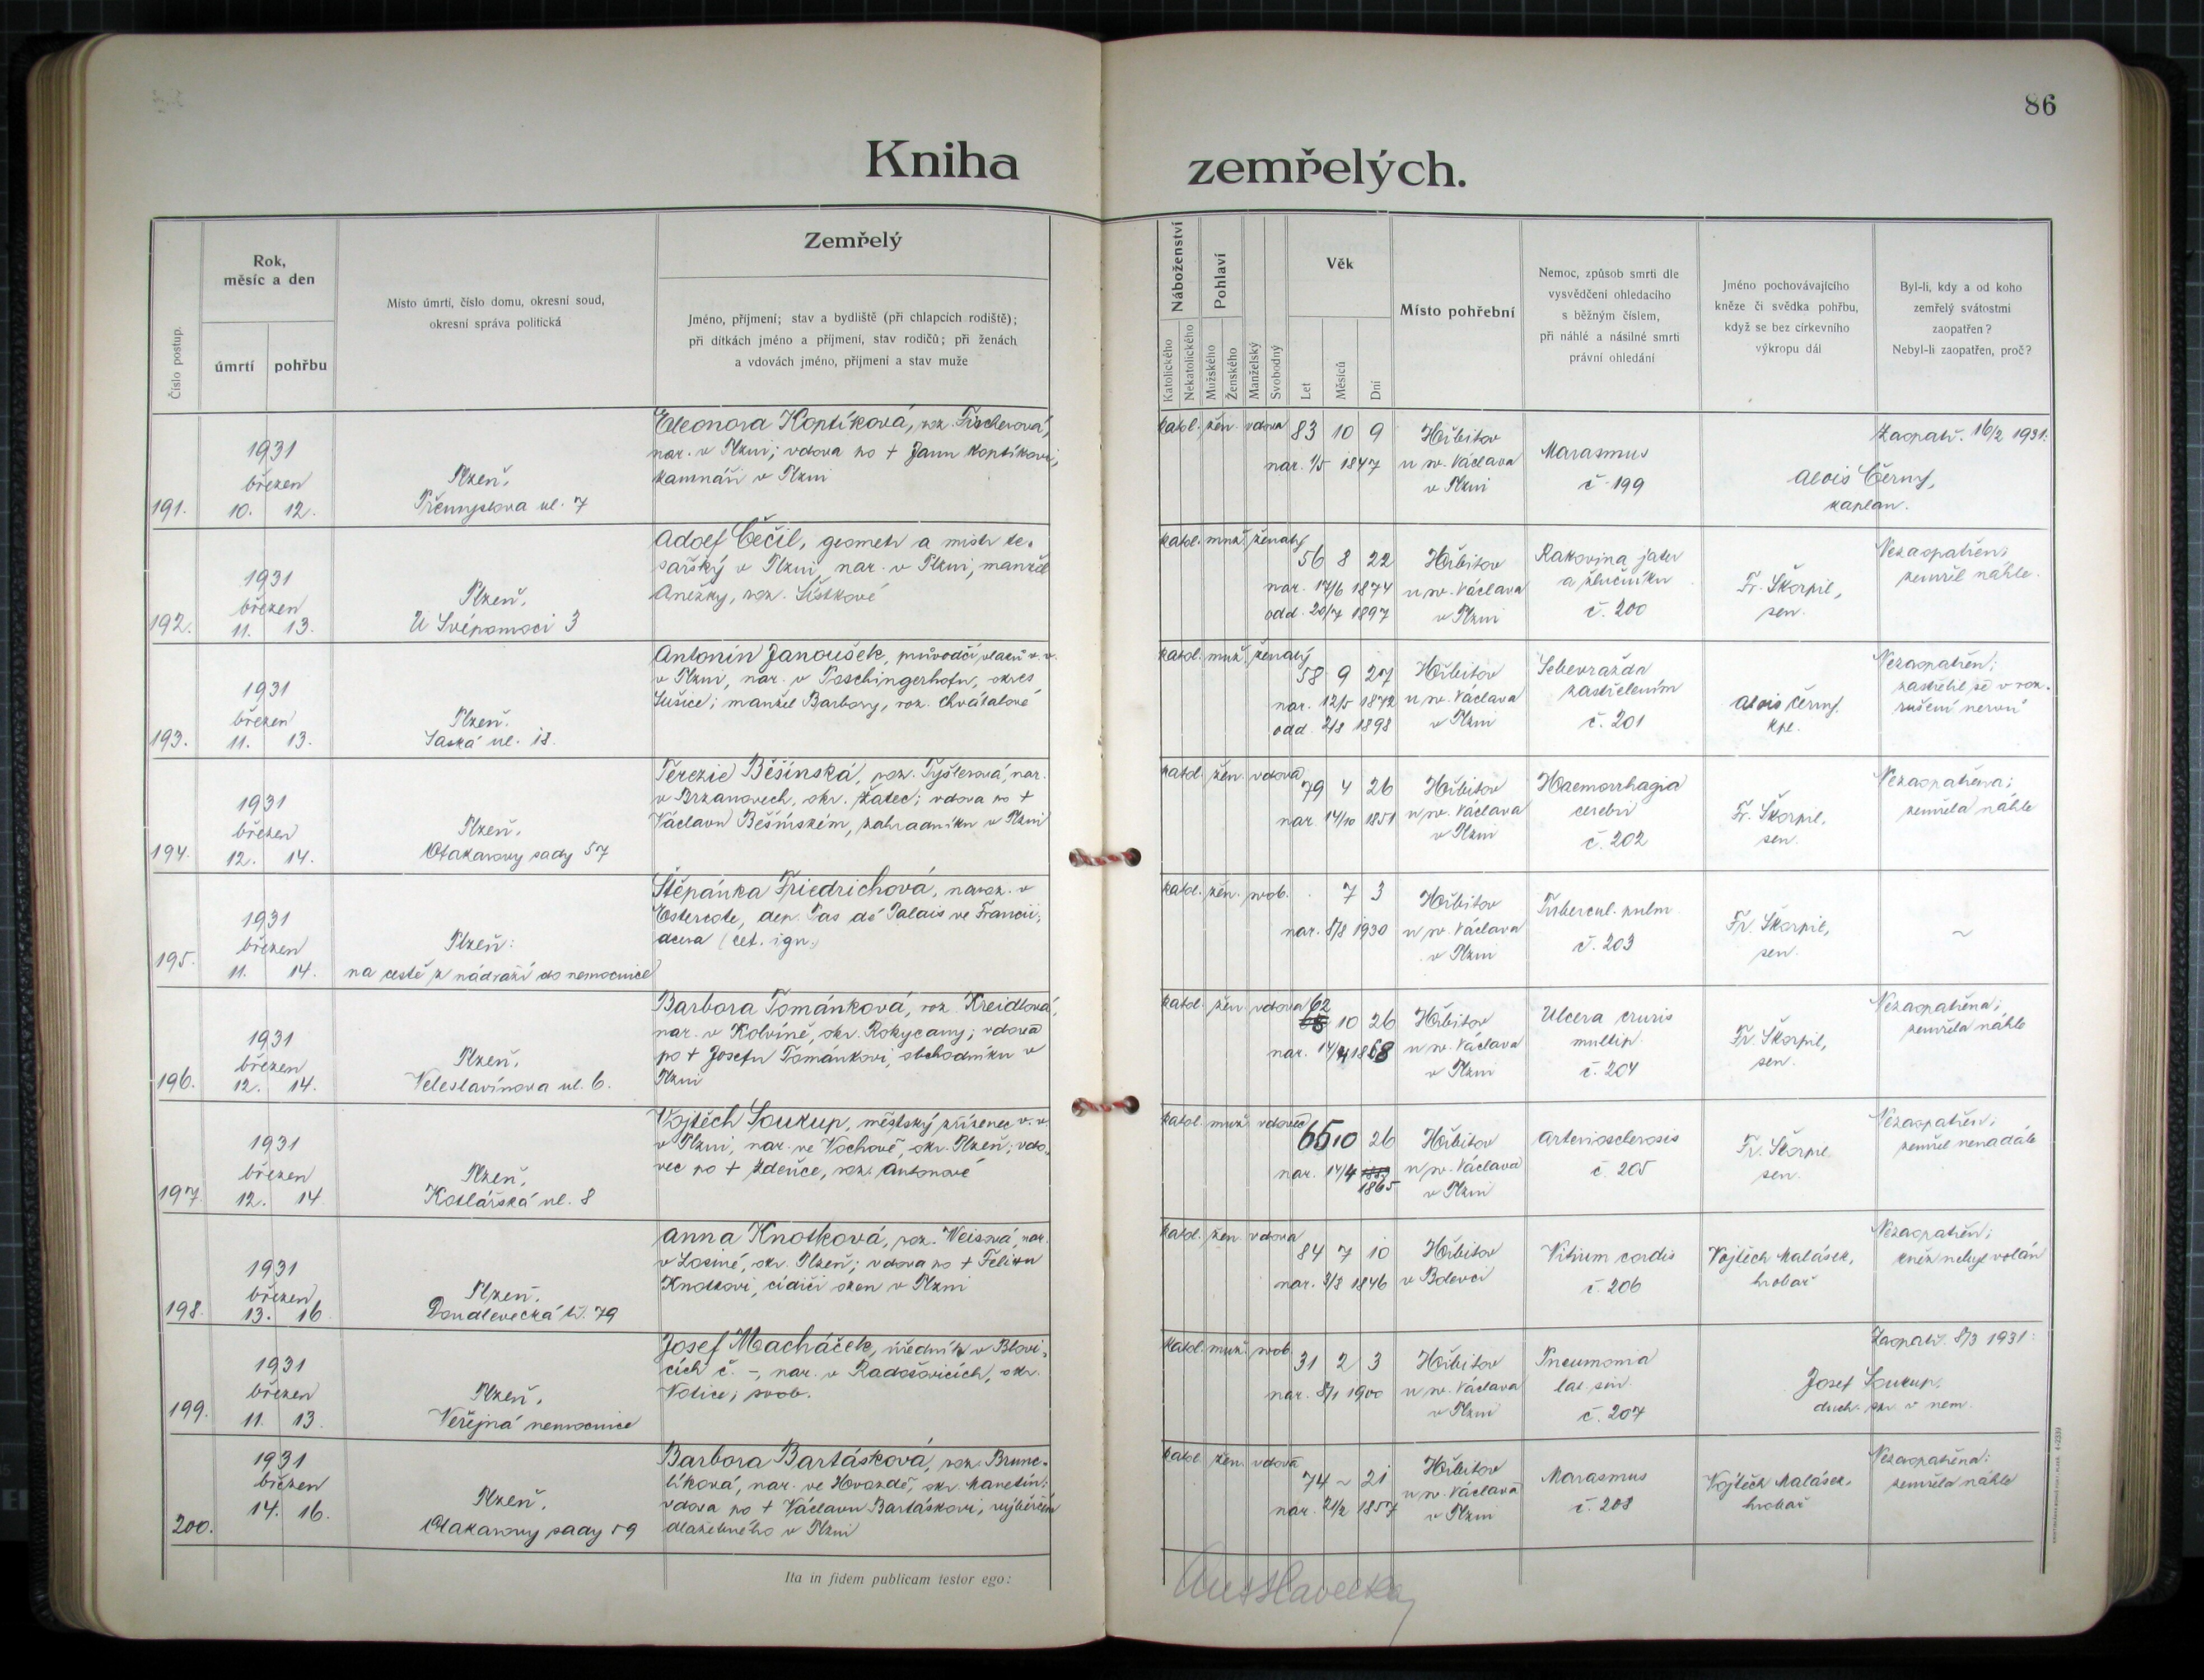 86
Kniha zemřelých.
Číslo postup.
Rok,
měsíc a den
úmrtí
pohřbu
Místo úmrtí, číslo domu, okresní soud,
okresní správa politická
Zemřelý
Jméno, příjmení; stav a bydliště (při chlapcích rodiště);
při dítkách jméno a příjmení, stav rodičů; při ženách
a vdovách jméno, příjmení a stav muže
Náboženství
Katolického
Nekatolického
Pohlaví
Mužského
Ženského
Manželský
Svobodný
Věk
Let
Měsíců
Dní
Místo pohřební
Nemoc, způsob smrti dle
vysvědčení ohledacího
s běžným číslem,
při náhlé a násilné smrti
právní ohledání
Jméno pochovávajícího
kněze či svědka pohřbu,
když se bez církevního
výkropu dál
Byl-li, kdy a od koho
zemřelý svátostmi
zaopatřen?
Nebyl-li zaopatřen, proč?
191.
1931
březen
10. 12.
Plzeň,
Přemyslova ul. 7
Eleonora Koptíková, roz. Fischerová,
nar. v Plzni; vdova po + Janu Koptíkovi,
kamnáři v Plzni
katol. žen. vdova 83 10 9
nar. 1/5 1847
Hřbitov
u sv. Václava
v Plzni
Marasmus
č. 199
Zaopatř. 16/2 1931:
Alois Černý,
kaplan.
192.
1931
březen
11. 13.
Plzeň,
U Svépomoci 3
Adolf Čečil, geometr a mistr te-
sařský v Plzni, nar. v Plzni, manžel
Anežky, roz. Lístkové
katol. muž. ženatý
56 8 22
nar. 17/6 1874
odd. 20/7 1897
Hřbitov
u sv. Václava
v Plzni
Rakovina jater
a žlučníku
č. 200
Fr. Škorpil,
sen.
Nezaopatřen;
zemřel náhle.
193.
1931
březen
11. 13.
Plzeň,
Saská ul. 18.
Antonín Janoušek, průvodčí vlaků v. v.
v Plzni, nar. v Poschingerhofu, okres
Sušice; manžel Barbory, roz. Chvátalové
katol. muž. ženatý
58 9 27
nar. 12/5 1872
odd. 2/8 1898
Hřbitov
u sv. Václava
v Plzni
Sebevražda
zastřelením
č. 201
Alois Černý,
kpl.
Nezaopatřen;
zastřelil se v roz-
rušení nervů
194.
1931
březen
12. 14.
Plzeň,
Otakarovy sady 57
Terezie Běšínská, roz. Tyšlerová, nar.
v Brzanovech, okr. Žatec; vdova po +
Václavu Běšínském, zahradníku v Plzni
katol. žen. vdova
79 4 26
nar. 14/10 1851
Hřbitov
u sv. Václava
v Plzni
Haemorrhagia
cerebri
č. 202
Fr. Škorpil,
sen.
Nezaopatřena;
zemřela náhle
195.
1931
březen
11. 14.
Plzeň:
na cestě z nádraží do nemocnice
Štěpánka Friedrichová, naroz. v
dep. Pas de Palais ve Francii;
dcera (cet. ign.)
katol. žen. svob. . 7 3
nar. 8/8 1930
Hřbitov
u sv. Václava
v Plzni
Tubercul. pulm.
č. 203
Fr. Škorpil,
sen.
~
196.
1931
březen
12. 14.
Plzeň,
Veleslavínova ul. 6.
Barbora Tománková, roz. Kreidlová,
nar. v Kolvíně, okr. Rokycany; vdova
po + Josefu Tománkovi, obchodníku v
Plzni
katol. žen. vdova 62
10 26
nar. 14/4 1868
Hřbitov
u sv. Václava
v Plzni
Ulcera cruris
multip.
č. 204
Fr. Škorpil,
sen.
Nezaopatřena;
zemřela náhle
197.
1931
březen
12. 14.
Plzeň,
Kotlářská ul. 8
Vojtěch Soukup, městský zřízenec v. v.
v Plzni, nar. ve Vochově, okr. Plzeň; vdo-
vec po + Zdeňce, roz. Antonové
katol. muž. vdovec
65 10 26
nar. 14/4
1865
Hřbitov
u sv. Václava
v Plzni
Arteriosclerosis
č. 205
Fr. Škorpil
sen.
Nezaopatřen;
zemřel nenadále
198.
1931
březen
13. 16
Plzeň,
Doudlevecká tř. 79
Anna Knotková, roz. Weisová, nar.
v Losiné, okr. Plzeň; vdova po + Felixu
Knotkovi, cídiči oken v Plzni
katol. žen. vdova
84 7 10
nar. 3/8 1846
Hřbitov
v Bolevci
Vitium cordis
č. 206
Vojtěch Malásek,
hrobař
Nezaopatřen;
kněz nebyl volán
199.
1931
březen
11. 13.
Plzeň,
Veřejná nemocnice
Josef Macháček, úředník v Blovi-
cích č. -, nar. v Radošovicích, okr.
Votice; svob.
katol. muž. svob.
31 2 3
nar. 8/1 1900
Hřbitov
u sv. Václava
v Plzni
Pneumonia
lat. sin.
č. 207
Zaopatř. 8/3 1931:
Josef Soukup,
duch. spr. v nem.
200.
1931
březen
14. 16.
Plzeň,
Otakarovy sady 59
Barbora Bartásková, roz. Brunc-
líková, nar. ve Hvozdě, okr. Manetín;
vdova po + Václavu Bartáskovi, výběrčím
dlažebného v Plzni
katol. žen. vdova
74 ~ 21
nar. 21/2 1857
Hřbitov
u sv. Václava
v Plzni
Marasmus
č. 208
Vojtěch Malásek,
hrobař
Nezaopatřena:
zemřela náhle
Ita in fidem publicam testor ego: